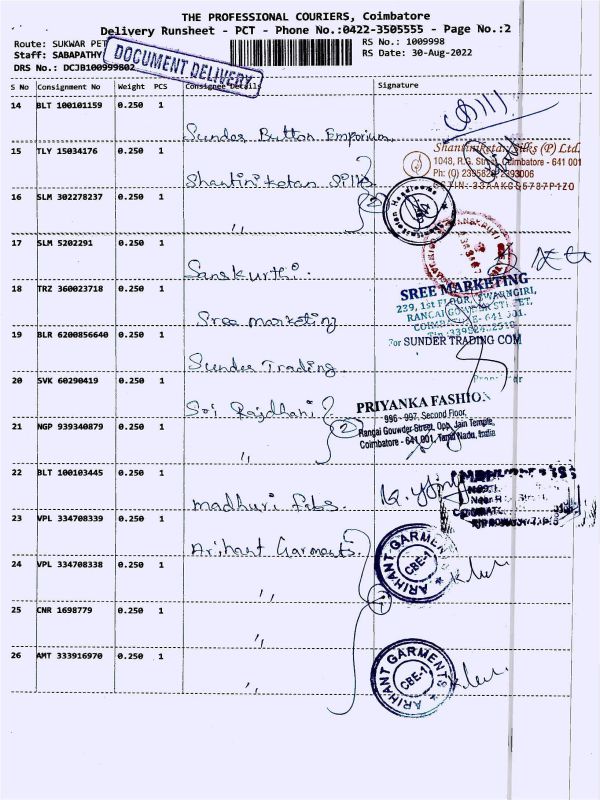 THE PROFESSIONAL COURIERS, Coimbatore
Delivery Runsheet - PCT - Phone No.:0422-3505555 - Page No.:2
Route: SUKWAR PET
RS No.: 1009998
Staff: SABAPATHY
RS Date: 30-Aug-2022
DRS No.: DCJB100999802
DOCUMENT DELIVERY
S No Consignment No Weight PCS Consignee Details Signature
14 BLT 100101159 0.250 1
Sundar Button Emporium
15 TLY 15034176 0.250 1
Shantiniketan Silks
Shantiniketan Silks (P) Ltd.
1048, R.G. Street, Coimbatore - 641 001
16 SLM 302278237 0.250 1
,, 2
17 SLM 5202291 0.250 1
Sanskurthi.
18 TRZ 360023718 0.250 1
Sree marketing
SREE MARKETING
239, 1st FLOOR,
RANGAI GOWDER STREET,
19 BLR 6200856640 0.250 1
Sundar Trading.
For SUNDER TRADING COM
20 SVK 60290419 0.250 1
Sri Rajdhani 2
PRIYANKA FASHION
996 - 997, Second Floor,
Rangai Gouwder Street, Opp. Jain Temple,
Coimbatore - 641 001, Tamil Nadu, India
21 NGP 939340879 0.250 1
,,
22 BLT 100103445 0.250 1
Madhuri Fabs.
23 VPL 334708339 0.250 1
Arihant Garments
ARIHANT GARMENTS
CBE-1
24 VPL 334708338 0.250 1
,,
25 CNR 1698779 0.250 1
,,
26 AMT 333916970 0.250 1
,,
ARIHANT GARMENTS
CBE-1